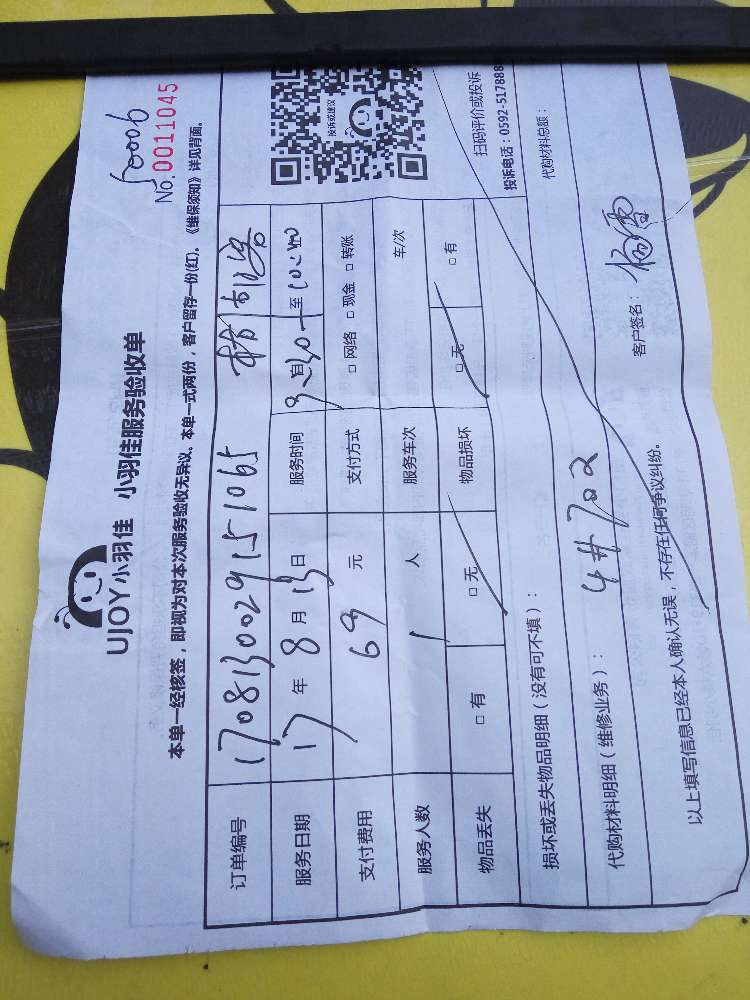 50006
No.0011045
UJOY小羽佳 小羽佳服务验收单
本单一经核签，即视为对本次服务验收无异议。本单一式两份，客户留存一份(红)。《维保须知》详见背面。
订单编号 170813002915 1065
服务日期 17 年 8 月 13 日 服务时间 9:30 至 10:40
支付费用 69 元 支付方式 □ 网络 □ 现金 □ 转账
服务人数 1 人 服务车次 车/次
物品丢失 □ 有 □ 无 物品损坏 □ 无 □ 有
投诉或建议
扫码评价或投诉
投诉电话：0592-517888
损坏或丢失物品明细（没有可不填）：
代购材料明细（维修业务）： 4#702
代购材料总额：
以上填写信息已经本人确认无误，不存在任何争议纠纷。
客户签名：